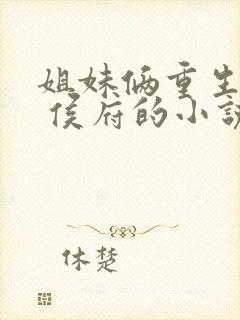 姐妹俩重生
侯府的小说
休楚